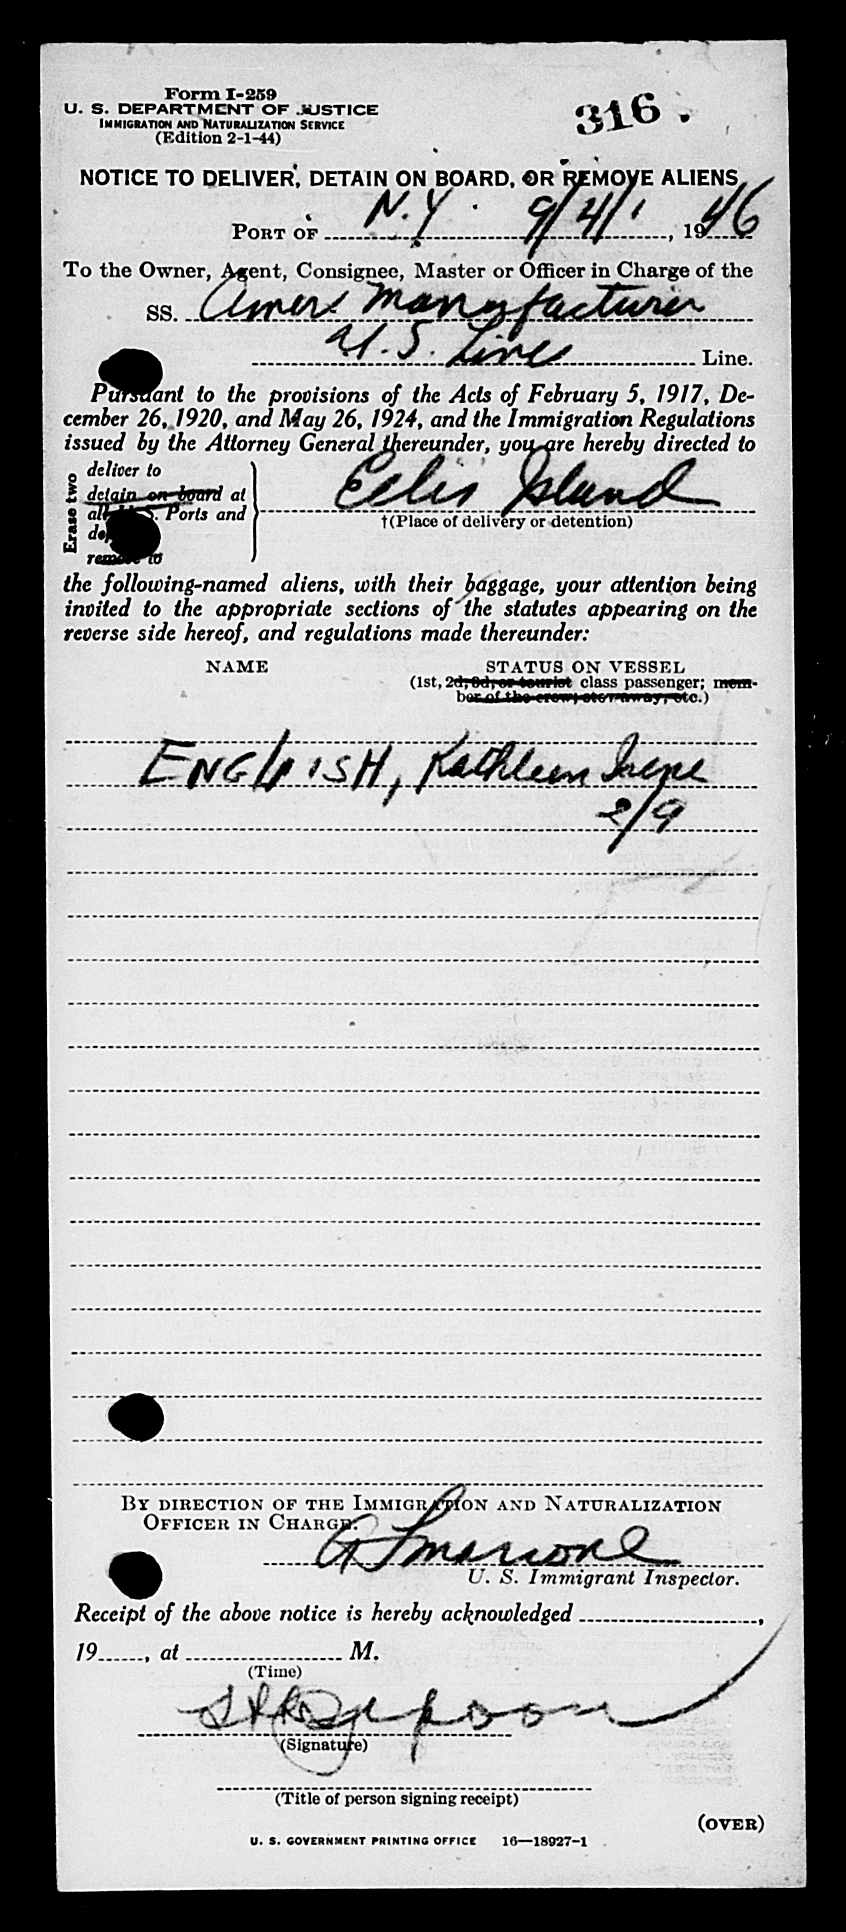 Form I-259
U. S. DEPARTMENT OF JUSTICE
IMMIGRATION AND NATURALIZATION SERVICE
(Edition 2-1-44)
316.
NOTICE TO DELIVER, DETAIN ON BOARD, OR REMOVE ALIENS
PORT OF N.Y. 9/4/, 1946
To the Owner, Agent, Consignee, Master or Officer in Charge of the
SS. Amer. Manufacturer
U.S. Line Line.
Pursuant to the provisions of the Acts of February 5, 1917, De-
cember 26, 1920, and May 26, 1924, and the Immigration Regulations
issued by the Attorney General thereunder, you are hereby directed to
Erase two
deliver to
detain on board at
all U. S. Ports and
remove to
Ellis Island
†(Place of delivery or detention)
the following-named aliens, with their baggage, your attention being
invited to the appropriate sections of the statutes appearing on the
reverse side hereof, and regulations made thereunder:
NAME STATUS ON VESSEL
(1st, 2d, 3d, or tourist class passenger; mem-
ber of the crew, stowaway, etc.)
ENGLISH, Kathleen Irene
2/9
BY DIRECTION OF THE IMMIGRATION AND NATURALIZATION
OFFICER IN CHARGE.
U. S. Immigrant Inspector.
Receipt of the above notice is hereby acknowledged ,
19 , at M.
(Time)
(Signature)
(Title of person signing receipt)
(OVER)
U. S. GOVERNMENT PRINTING OFFICE 16—18927-1